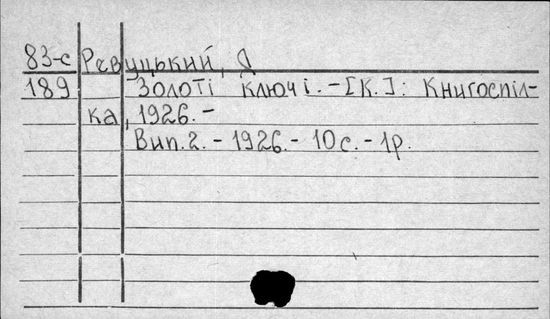 83-с Ревуцький, Д
189 Золоті ключі. - [К.]: Книгоспіл-
ка, 1926. -
Вип. 2. - 1926. - 10с. - 1р.